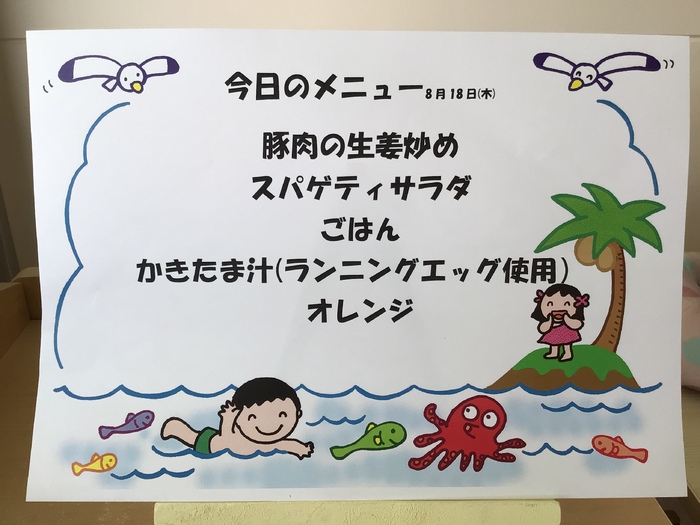 今日のメニュー8月18日(木)
豚肉の生姜炒め
スパゲティサラダ
ごはん
かきたま汁(ランニングエッグ使用)
オレンジ